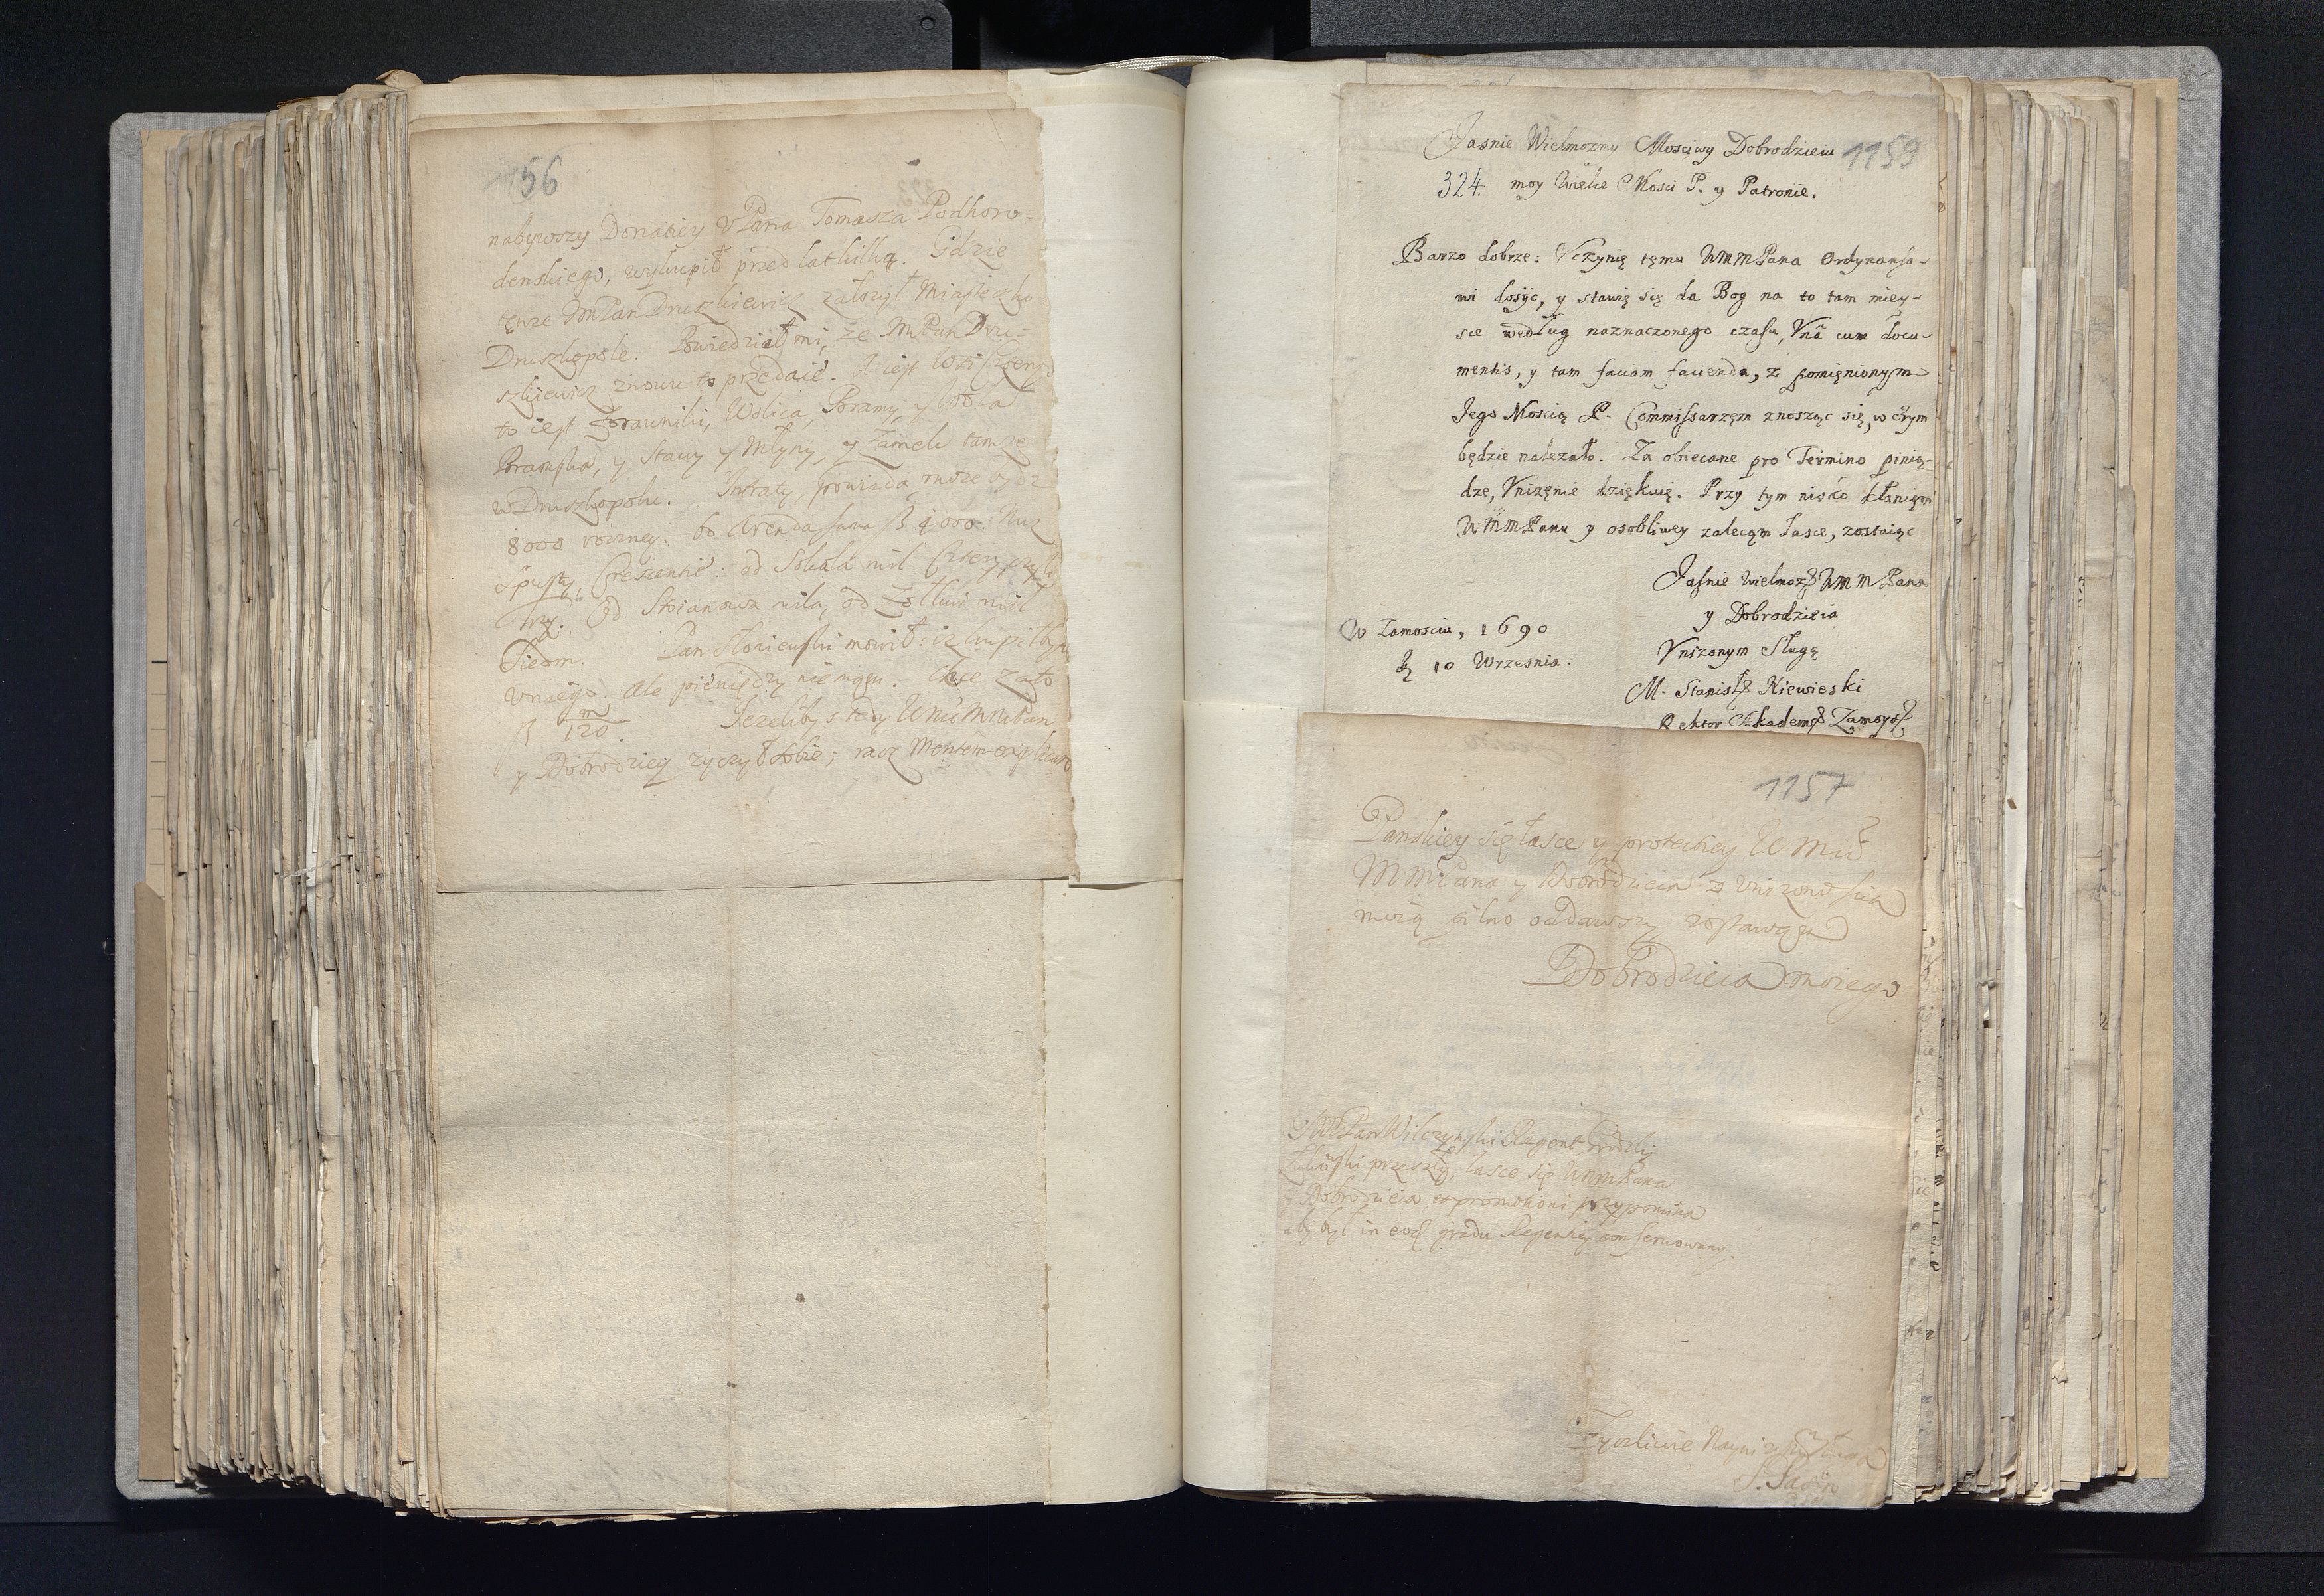 1156
nabywszy Donatiey V Pana Tomasza Podhoro-
denskiego, wykupił przed lat kilką. Gdzie
tenze JmPan Druszkiewicz załozył Miasteczko
Druszkopole. Powiedział mi, ze JmPan Dru-
szkiewicz znowu to przedaie. A iest Wsi Cztery
to iest Zorawniki, Wolica, Poramy, y Wola
Poramska, y Stawy y Młyny, y Zamek tamze
w Druszkopolu. Intraty, powiada, moze bydz
8000 roczney. bo Arenda sama fl 4000.
Crescentie: od Sokala mil Cztery,
trzy. Od Stoianowa mila, od mil
Siedm. Pan Słoniewski mowił: iz kupiłbym
v niego. ale pieniędzy nie mam. Chce za to
fl m/120. Jezelibys tedy WmMmPan
y Dobrodziey zyczył sobie; racz Mentem explicare
1159
Jasnie Wielmozny Mosciwy Dobrodzieiu
324. moy Wielce Mosci P. y Patronie.
Barzo dobrze: Vczynię tęmu WMMPana Ordynanso-
wi dosyc, y stawię się da Bog na to tam miey-
sce według naznaczonego czasu, Vnâ cum docu-
mentis, y tam faciam facienda, z pomięnionym
Jego Moscią P. Commissarzęm znosząc się, w czym
będzie nalezało. Za obiecane pro Termino pinią-
dze, Vnizęnie dziękuię. Przy tym nisko kłaniąm
WMMPanu y osobliwey zalecąm łasce, zostaiąc
Jasnie Wielmoz WMMPana
y Dobrodzieia
Vnizonym Sługą
W Zamosciu, 1690
10 Wrzesnia.
M. Stanisł Kiewieski
Rektor Akadem Zamoys
1157
Panskiey się łasce y protectiey WMci
MMPana y Dobrodzieia z vnizonoscią
moią pilno oddawszy zostawam
Dobrodzieia moiego
JmPan Wilczynski Regent Grodzki
przeszły, łasce się WMMPana
y Dobrodzieia promotioni przypomina
aby był in gradu Regentiey conserwowany.
Zyczliwie Nayniszy Sługa